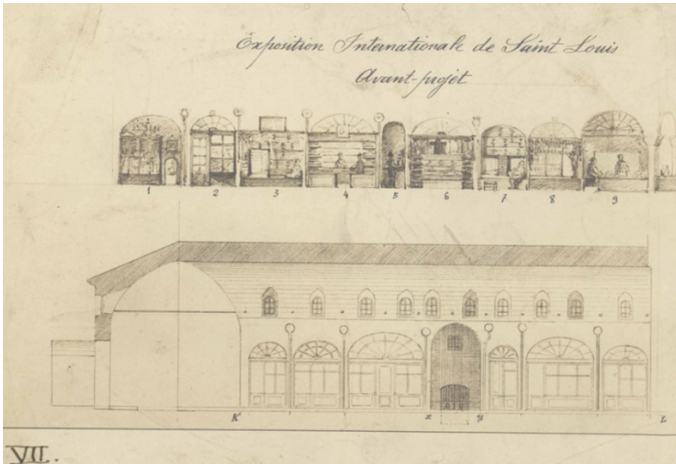 Exposition Internationale de Saint Louis
Avant-projet
1 2 3 4 5 6 7 8 9
K x y L
VII.